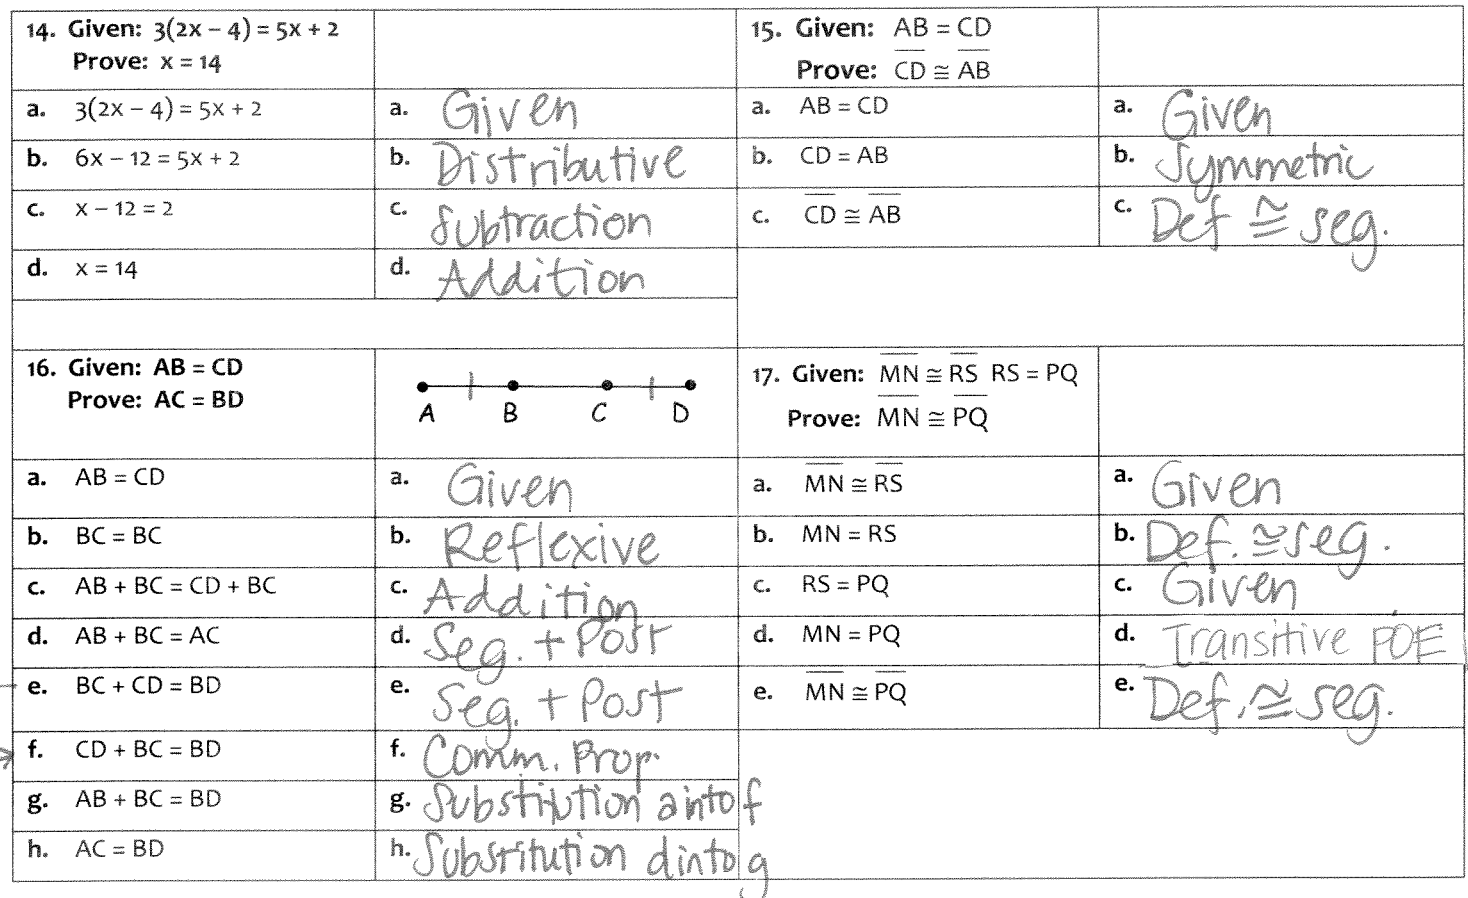 14. Given: 3(2x – 4) = 5x + 2
Prove: x = 14
a. 3(2x – 4) = 5x + 2 a. Given
b. 6x – 12 = 5x + 2 b. Distributive
c. x – 12 = 2 c. Subtraction
d. x = 14 d. Addition
15. Given: AB = CD
Prove: C̅D̅ ≅ A̅B̅
a. AB = CD a. Given
b. CD = AB b. Symmetric
c. C̅D̅ ≅ A̅B̅ c. Def ≅ seg.
16. Given: AB = CD
Prove: AC = BD
A B C D
a. AB = CD a. Given
b. BC = BC b. Reflexive
c. AB + BC = CD + BC c. Addition
d. AB + BC = AC d. Seg. + Post
e. BC + CD = BD e. Seg. + Post
f. CD + BC = BD f. Comm. Prop.
g. AB + BC = BD g. Substitution a into f
h. AC = BD h. Substitution d into g
17. Given: M̅N̅ ≅ R̅S̅ RS = PQ
Prove: M̅N̅ ≅ P̅Q̅
a. M̅N̅ ≅ R̅S̅ a. Given
b. MN = RS b. Def. ≅ seg.
c. RS = PQ c. Given
d. MN = PQ d. Transitive POE
e. M̅N̅ ≅ P̅Q̅ e. Def. ≅ seg.